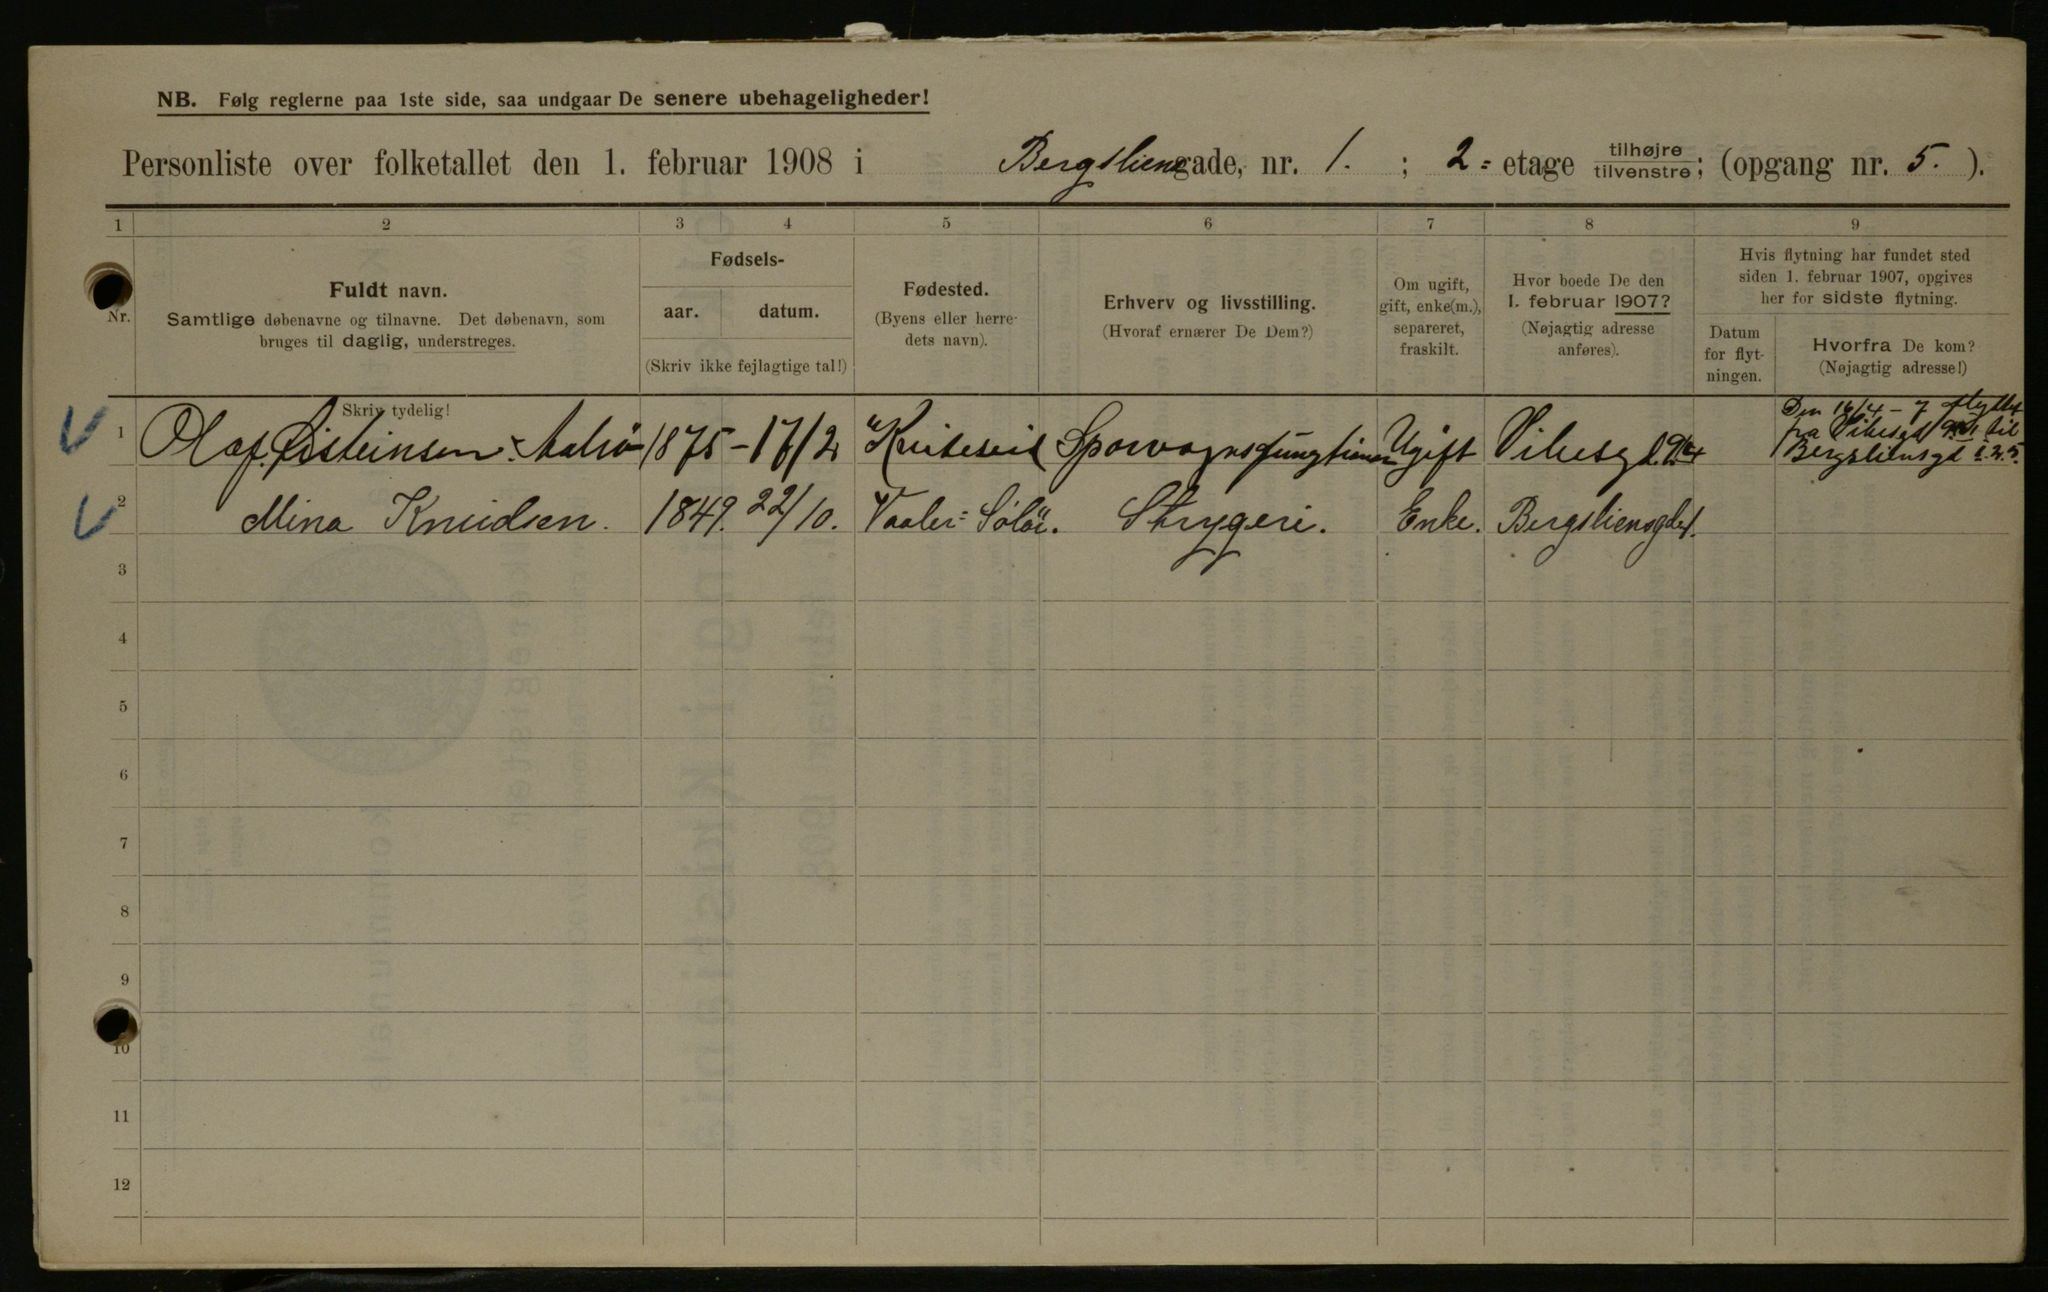 NB. Følg reglerne paa 1ste side, saa undgaar De senere ubehageligheder!
Personliste over folketallet den 1. februar 1908 i Bergsliensgade, nr. 1. ; 2= etage tilhøjre tilvenstre; (opgang nr. 5. ).
1 2 3 4 5 6 7 8 9
Nr.
Fuldt navn.
Samtlige døbenavne og tilnavne. Det døbenavn, som
bruges til daglig, understreges.
Skriv tydelig!
Fødsels-
aar. datum.
(Skriv ikke fejlagtige tal!)
Fødested.
(Byens eller herre-
dets navn).
Erhverv og livsstilling.
(Hvoraf ernærer De Dem?)
Om ugift,
gift, enke(m.),
separeret,
fraskilt.
Hvor boede De den
1. februar 1907?
(Nøjagtig adresse
anføres).
Hvis flytning har fundet sted
siden 1. februar 1907, opgives
her for sidste flytning.
Datum
for flyt-
ningen.
Hvorfra De kom?
(Nøjagtig adresse!)
1 Olaf Østeinsen 1875 - 17/2 Kviteseid Sporvognsfungtionær Ugift Vibesgd.
Den 16/4 - 7 flyttet
fra Vibesgd til
Bergsliensgd 1. 2. 5.
2 Mina Knudsen. 1849. 22/10. Vaaler= Solør. Strygeri. Enke. Bergsliensgd 1.
3
4
5
6
7
8
9
10
11
12